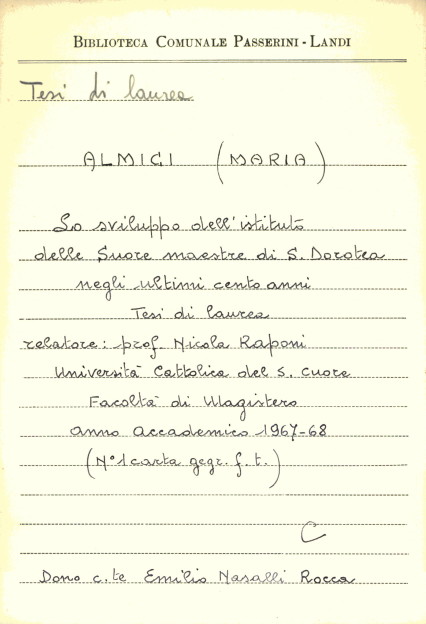 BIBLIOTECA COMUNALE PASSERINI - LANDI
Tesi di laurea
ALMICI (MARIA)
Lo sviluppo dell'istituto
delle Suore maestre di S. Dorotea
negli ultimi cento anni
Tesi di laurea
relatore: prof. Nicola Raponi
Università Cattolica del S. Cuore
Facoltà di Magistero
anno accademico 1967-68
(N° 1 carta gegr. f. t.)
C
Dono c.te Emilio Nasalli Rocca